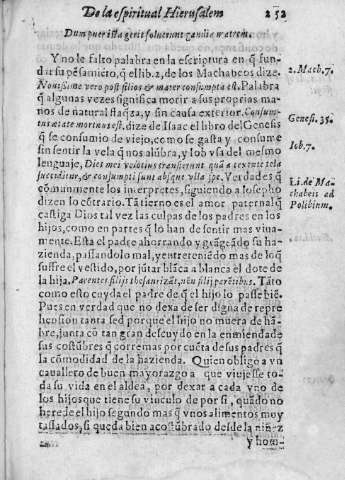 De la espiritual Hierusalem 252
Dum puer ista gerit soluerunt gaudia matrem.
Y no le falto palabra en la escriptura en q̃ fun-
dar su pẽsamiẽto, q̃ el lib. 2. de los Machabeos dize.
2. Mach. 7.
Nouissime vero post filios & mater consumpta est. Palabra
q̃ algunas vezes significa morir a sus proprias ma-
nos de natural flaq̃za, y sin causa exterior. Consum-
Genesi. 35.
tus ætate mortuus est. dize de Isaac el libro del Genesis
q̃ se consumio de viejo, como se gasta y consume
sin sentir la vela q̃ nos alũbra, y Iob vsa del mesmo
Iob. 7.
lenguaje, Dies mei velotius transierunt quã a texente tela
succiditur, & consumpti sunt absque vlla spe. Verdades q̃
cõmunmente los interpretes, siguiendo a Iosepho
Li. de Ma-
dizen lo cõtrario. Tã tierno es el amor paternal q̃
chabeis ad
castiga Dios tal vez las culpas de los padres en los
Polibinm.
hijos, como en partes q̃ lo han de sentir mas viua-
mente. Esta el padre ahorrando y grãgeãdo su ha-
zienda, passandolo mal, y entreteniẽdo mas de lo q̃
suffre el vestido, por jũtar blãca a blanca el dote de
la hija. Parentes filijs thesaurizãt, nõ filij parẽtibus. Tãto
como esto cuyda el padre de q̃ el hijo lo passe biẽ.
Pues en verdad que no dexa de ser digna de repre
hension tanta sed porque el hijo no muera de hã-
bre, junta cõ tan gran descuydo en la enmienda de
sus costũbres q̃ corre mas por cuẽta de sus padres q̃
la cõmodidad de la hazienda. Quien obligo a vn
cauallero de buen mayorazgo a que viuiesse to-
da su vida en el aldea, por dexar a cada vno de
los hijos que tiene su vinculo de por si, quãdo no
herede el hijo segundo mas q̃ vnos alimentos muy
tassados, si queda bien acostũbrado desde la niñez
y hom-